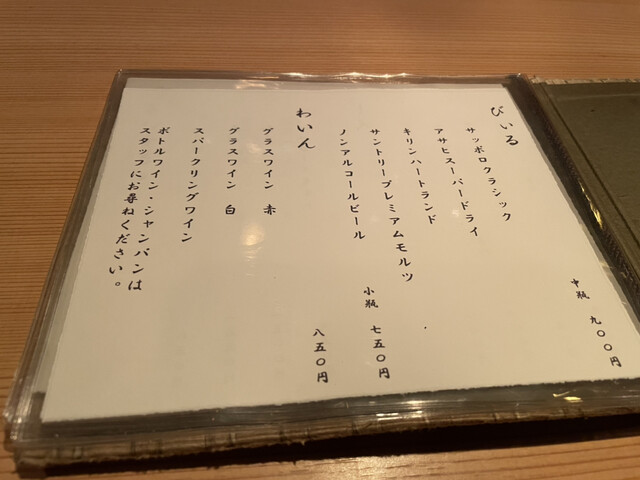 びいる
サッポロクラシック 中瓶 九〇〇円
アサヒスーパードライ
キリンハートランド
サントリープレミアムモルツ 小瓶 七五〇円
ノンアルコールビール 八五〇円
わいん
グラスワイン 赤
グラスワイン 白
スパークリングワイン
ボトルワイン・シャンパンは
スタッフにお尋ねください。